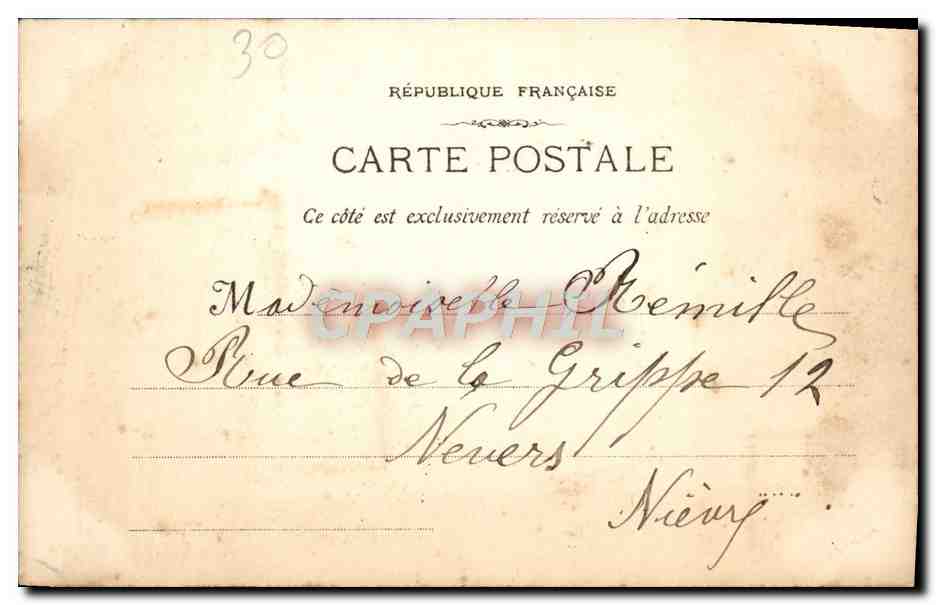 30
RÉPUBLIQUE FRANÇAISE
CARTE POSTALE
Ce côté est exclusivement réservé à l'adresse
Mademoiselle Rémille
CPAPHIL
Rue de la Grippe 12
Nevers
Nièvre